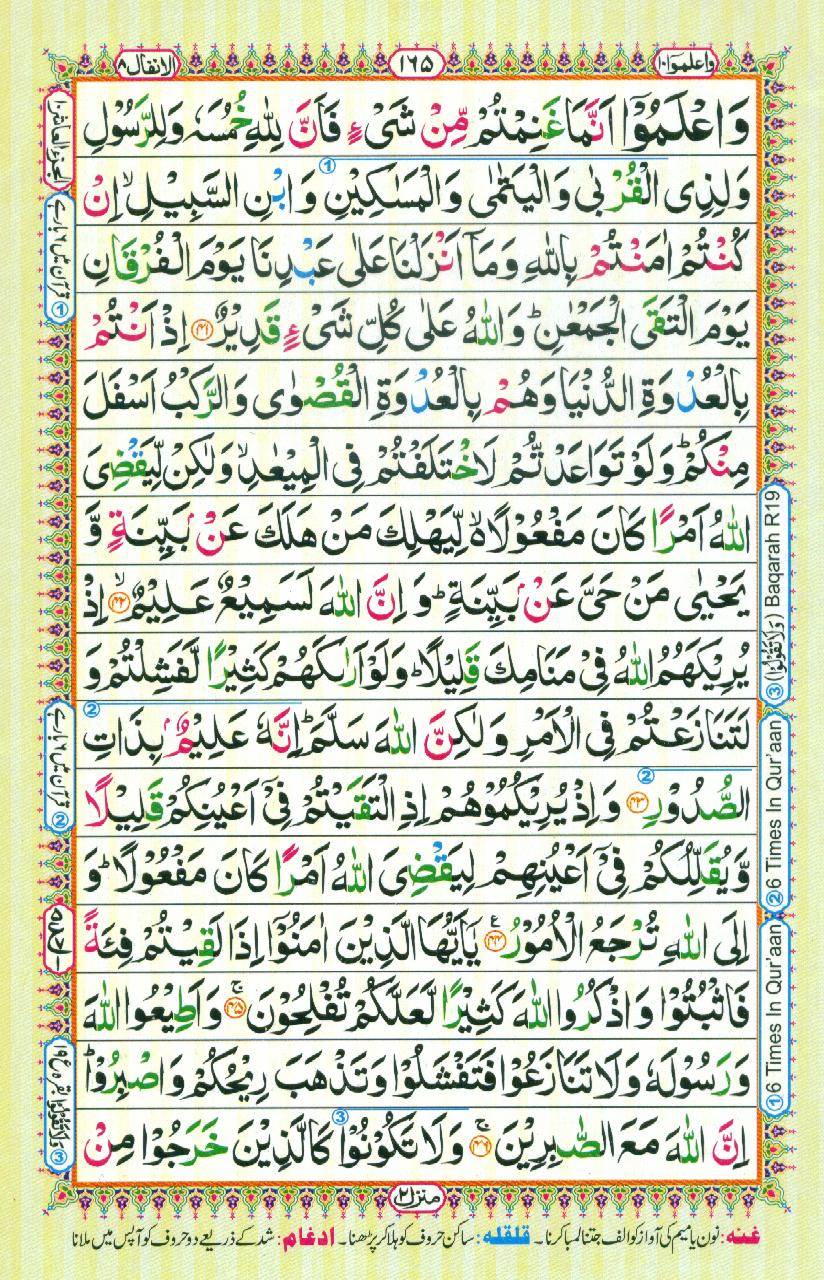 واعلموا ١٠
١٦٥
الانفال ٨
وَاعْلَمُوْٓا اَنَّمَا غَنِمْتُمْ مِّنْ شَیْءٍ فَاَنَّ لِلّٰهِ خُمُسَهٗ وَلِلرَّسُوْلِ
وَلِذِی الْقُرْبٰی وَالْیَتٰمٰی وَالْمَسٰكِیْنِ وَابْنِ السَّبِیْلِ ۙ اِنْ
كُنْتُمْ اٰمَنْتُمْ بِاللّٰهِ وَمَاۤ اَنْزَلْنَا عَلٰی عَبْدِنَا یَوْمَ الْفُرْقَانِ
یَوْمَ الْتَقَی الْجَمْعٰنِ ؕ وَاللّٰهُ عَلٰی كُلِّ شَیْءٍ قَدِیْرٌ ﴿۴۱﴾ اِذْ اَنْتُمْ
بِالْعُدْوَةِ الدُّنْیَا وَهُمْ بِالْعُدْوَةِ الْقُصْوٰی وَالرَّكْبُ اَسْفَلَ
مِنْكُمْ ؕ وَلَوْ تَوَاعَدْتُّمْ لَاخْتَلَفْتُمْ فِی الْمِیْعٰدِ ۙ وَلٰكِنْ لِّیَقْضِیَ
اللّٰهُ اَمْرًا كَانَ مَفْعُوْلًا ۙ۬ لِّیَهْلِكَ مَنْ هَلَكَ عَنْۢ بَیِّنَةٍ وَّ
یَحْیٰی مَنْ حَیَّ عَنْۢ بَیِّنَةٍ ؕ وَ اِنَّ اللّٰهَ لَسَمِیْعٌ عَلِیْمٌ ﴿۴۲﴾ ۙ اِذْ
یُرِیْكَهُمُ اللّٰهُ فِیْ مَنَامِكَ قَلِیْلًا ؕ وَلَوْ اَرٰىكَهُمْ كَثِیْرًا لَّفَشِلْتُمْ وَ
لَتَنَازَعْتُمْ فِی الْاَمْرِ وَلٰكِنَّ اللّٰهَ سَلَّمَ ؕ اِنَّهٗ عَلِیْمٌۢ بِذَاتِ
الصُّدُوْرِ ﴿۴۳﴾ وَاِذْ یُرِیْكُمُوْهُمْ اِذِ الْتَقَیْتُمْ فِیْۤ اَعْیُنِكُمْ قَلِیْلًا
وَّیُقَلِّلُكُمْ فِیْۤ اَعْیُنِهِمْ لِیَقْضِیَ اللّٰهُ اَمْرًا كَانَ مَفْعُوْلًا ؕ وَ
اِلَی اللّٰهِ تُرْجَعُ الْاُمُوْرُ ﴿۴۴﴾ یٰۤاَیُّهَا الَّذِیْنَ اٰمَنُوْۤا اِذَا لَقِیْتُمْ فِئَةً
فَاثْبُتُوْا وَاذْكُرُوا اللّٰهَ كَثِیْرًا لَّعَلَّكُمْ تُفْلِحُوْنَ ﴿۴۵﴾ ۚ وَاَطِیْعُوا اللّٰهَ
وَرَسُوْلَهٗ وَلَا تَنَازَعُوْا فَتَفْشَلُوْا وَتَذْهَبَ رِیْحُكُمْ وَاصْبِرُوْا ؕ
اِنَّ اللّٰهَ مَعَ الصّٰبِرِیْنَ ﴿۴۶﴾ ۚ وَلَا تَكُوْنُوْا كَالَّذِیْنَ خَرَجُوْا مِنْ
منزل ٢
③ (وَلَا تَقُوْلُوْا) Baqarah R19
② 6 Times In Qur'aan
① 6 Times In Qur'aan
الجزء العاشر ١٠
① قرآن میں ٦ بار ہے
② قرآن میں ٦ بار ہے
غنہ: نون یا میم کی آواز کو الف جتنا لمبا کرنا۔ قلقلہ: ساکن حروف کو ہلا کر پڑھنا۔ ادغام: شد کے ذریعے دو حروف کو آپس میں ملانا